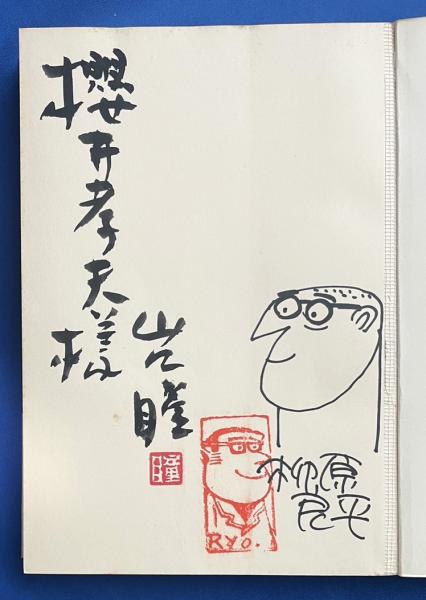 櫻井孝夫様
山口瞳
瞳
RYO.
柳原
良平